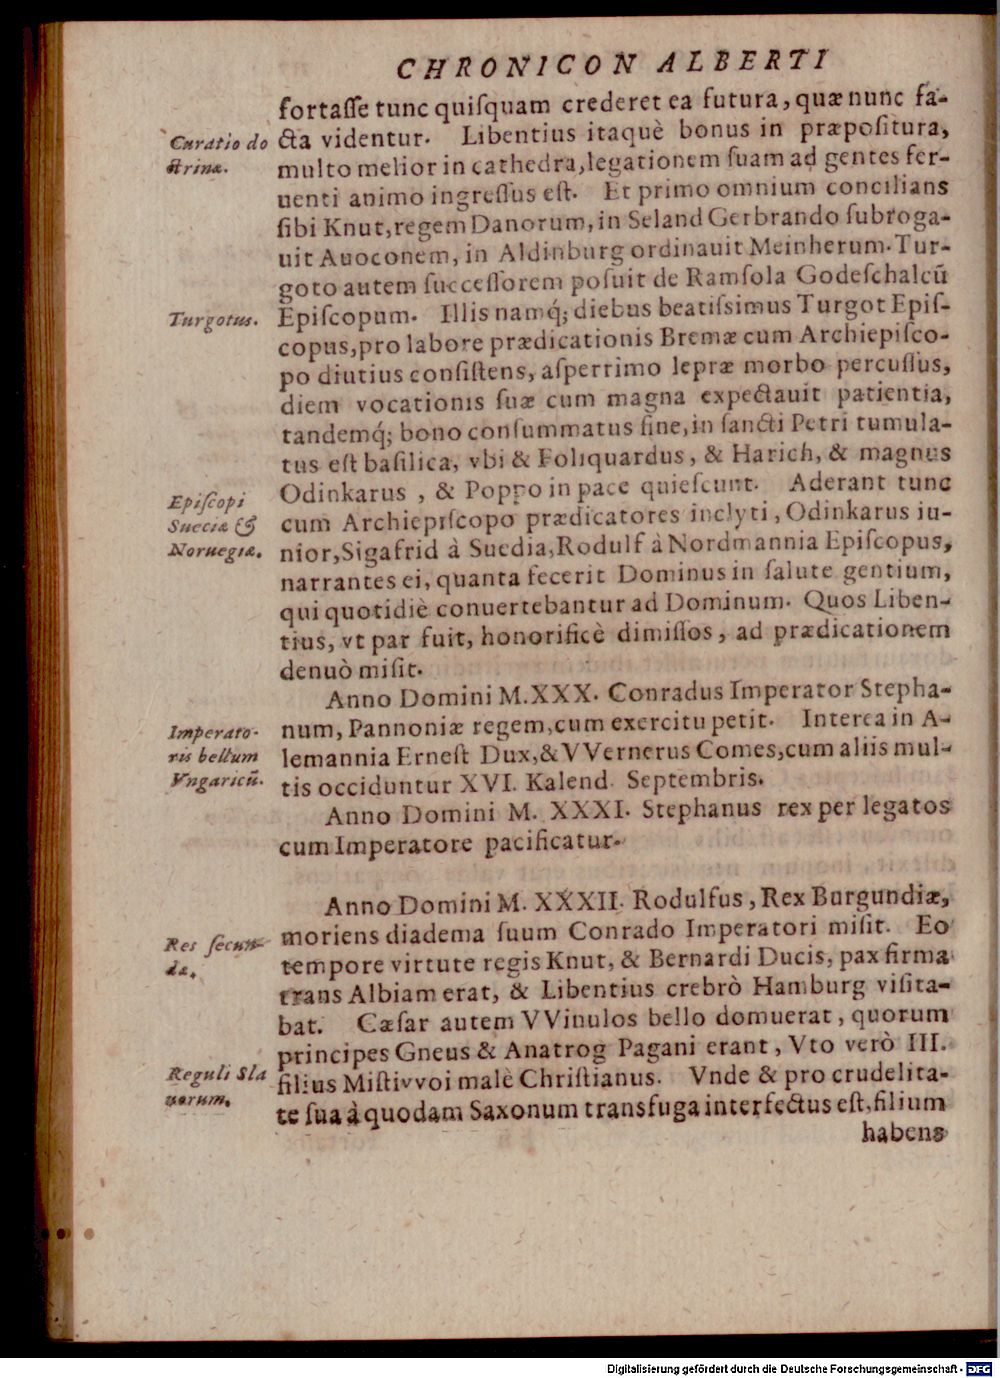 CHRONICON ALBERTI
fortaſſe tunc quiſquam crederet ea futura, quæ nunc fa-
Curatio do
cta videntur. Libentius itaquè bonus in præpoſitura,
ctrinæ.
multo melior in cathedra, legationem ſuam ad gentes fer-
uenti animo ingreſſus eſt. Et primo omnium concilians
ſibi Knut, regem Danorum, in Seland Gerbrando ſubroga-
uit Auoconem, in Aldinburg ordinauit Meinherum. Tur-
goto autem ſucceſſorem poſuit de Ramſola Godeſchalcũ
Turgotus.
Epiſcopum. Illis namq́; diebus beatiſsimus Turgot Epiſ-
copus, pro labore prædicationis Bremæ cum Archiepiſco-
po diutius conſiſtens, aſperrimo lepræ morbo percuſſus,
diem vocationis ſuæ cum magna expectauit patientia,
tandemq́; bono conſummatus fine, in ſancti Petri tumula-
tus eſt baſilica, vbi & Foliquardus, & Harich, & magnus
Epiſcopi
Odinkarus, & Poppo in pace quieſcunt. Aderant tunc
Sueciæ &
cum Archiepiſcopo prædicatores inclyti, Odinkarus iu-
Noruegiæ.
nior, Sigafrid à Suedia, Rodulf à Nordmannia Epiſcopus,
narrantes ei, quanta fecerit Dominus in ſalute gentium,
qui quotidiè conuertebantur ad Dominum. Quos Liben-
tius, vt par fuit, honorificè dimiſſos, ad prædicationem
denuò miſit.
Anno Domini M.XXX. Conradus Imperator Stepha-
Imperato-
num, Pannoniæ regem, cum exercitu petit. Interea in A-
ris bellum
lemannia Erneſt Dux, & VVernerus Comes, cum aliis mul-
Vngaricũ.
tis occiduntur XVI. Kalend. Septembris.
Anno Domini M. XXXI. Stephanus rex per legatos
cum Imperatore pacificatur.
Anno Domini M. XXXII. Rodulfus, Rex Burgundiæ,
Res ſecun-
moriens diadema ſuum Conrado Imperatori miſit. Eo
dæ.
tempore virtute regis Knut, & Bernardi Ducis, pax firma
trans Albiam erat, & Libentius crebrò Hamburg viſita-
bat. Cæſar autem VVinulos bello domuerat, quorum
principes Gneus & Anatrog Pagani erant, Vto verò III.
Reguli Sla
filius Miſtivvoi malè Chriſtianus. Vnde & pro crudelita-
uorum.
te ſua à quodam Saxonum transfuga interfectus eſt, filium
habens
Digitalisierung gefördert durch die Deutsche Forschungsgemeinschaft - DFG